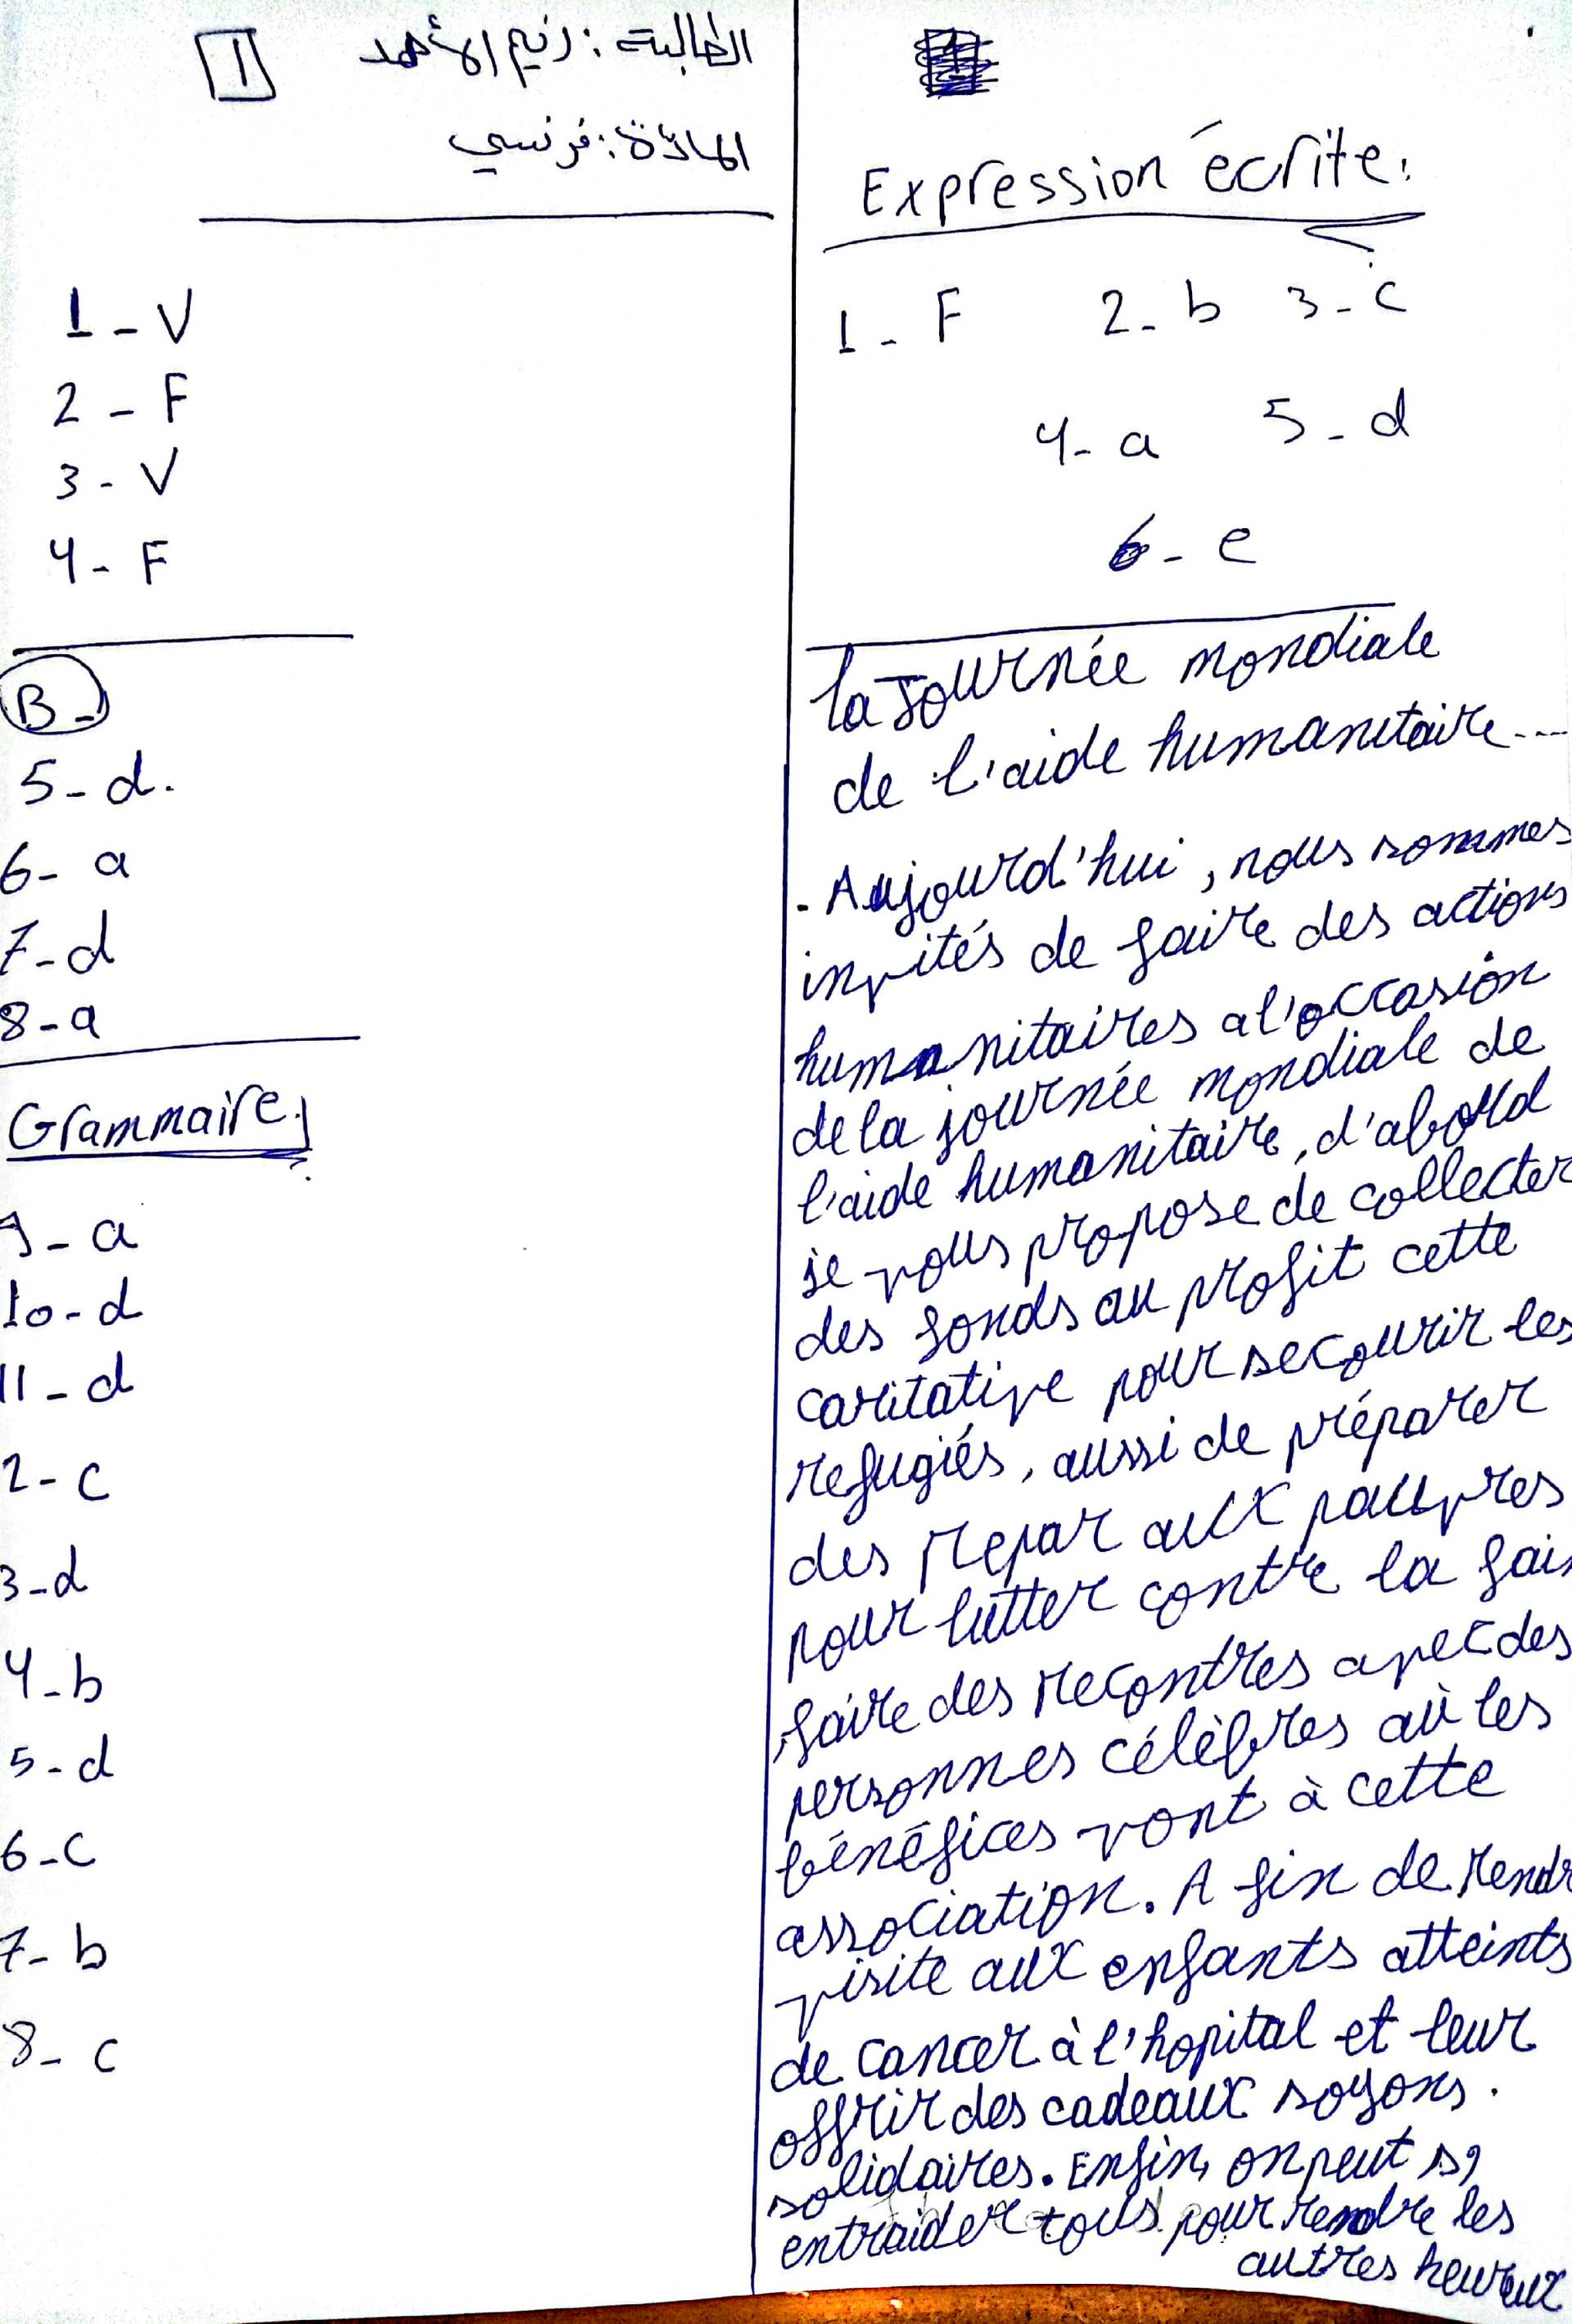 الطالبة: رنيم الأحمد
1
المادة: فرنسي
1 - V
2 - F
3 - V
4 - F
B -
5 - d.
6 - a
7 - d
8 - a
Grammaire:
9 - a
10 - d
11 - d
2 - c
3 - d
4 - b
5 - d
6 - c
7 - b
8 - c
Expression écrite:
1 - F 2 - b 3 - c
4 - a 5 - d
6 - e
la Journée mondiale
de l'aide humanitaire...
- Aujourd'hui, nous sommes
invités de faire des actions
humanitaires a l'occasion
de la journée mondiale de
l'aide humanitaire, d'abord
je vous propose de collecter
des fonds au profit cette
caritative pour secourir les
refugiés, aussi de préparer
des repar aux pauvres
pour lutter contre la fai
faire des recontres avec des
personnes célèbres où les
bénéfices vont à cette
association. A fin de rendr
visite aux enfants atteints
de cancer à l'hopital et leur
offrir des cadeaux soyons.
solidaires. Enfin, on peut s'
entraider tous pour rendre les
autres heureux